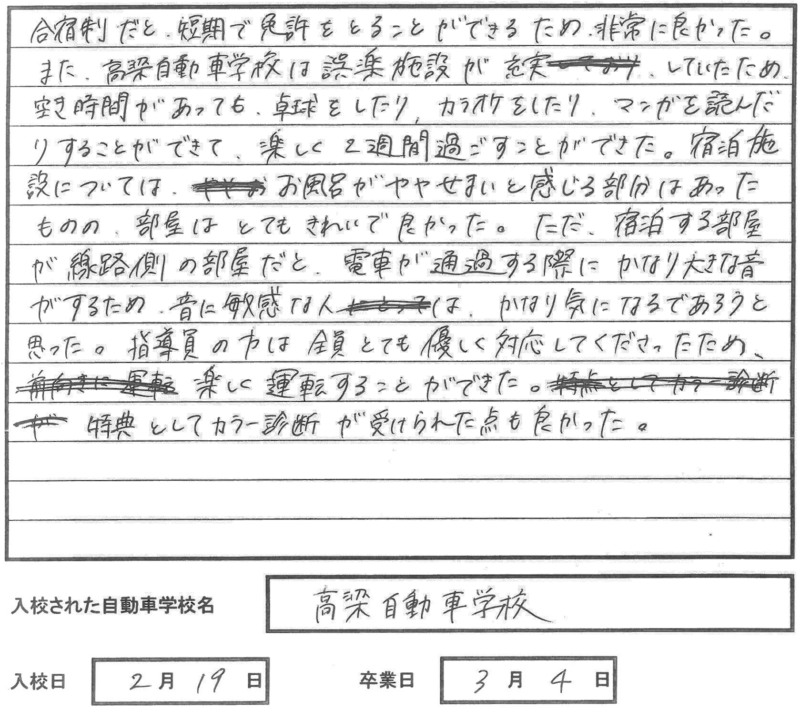 合宿制だと、短期で免許をとることができるため、非常に良かった。
また、高梁自動車学校は誤楽施設が充実、していたため、
空き時間があっても、卓球をしたり、カラオケをしたり、マンガを読んだ
りすることができて、楽しく2週間過ごすことができた。宿泊施
設については、お風呂がややせまいと感じる部分はあった
ものの、部屋はとてもきれいで良かった。ただ、宿泊する部屋
が線路側の部屋だと、電車が通過する際にかなり大きな音
がするため、音に敏感な人は、かなり気になるであろうと
思った。指導員の方は全員とても優しく対応してくださったため、
楽しく運転することができた。
特典としてカラー診断が受けられた点も良かった。
入校された自動車学校名 高梁自動車学校
入校日 2月19日 卒業日 3月4日